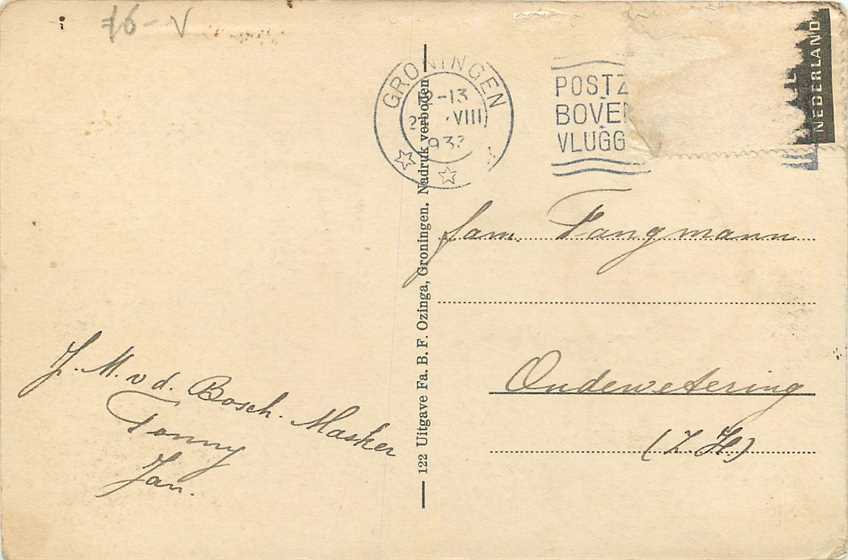 76 - V
GRONINGEN
-13
VIII
POSTZ
BOVEN
VLUGG
NEDERLAND
122 Uitgave Fa. B. F. Ozinga, Groningen. Nadruk verboden
fam. Tangmann
Oudewetering
(Z.H.)
J. M. v d. Bosch-Masker
Tonny
Jan.